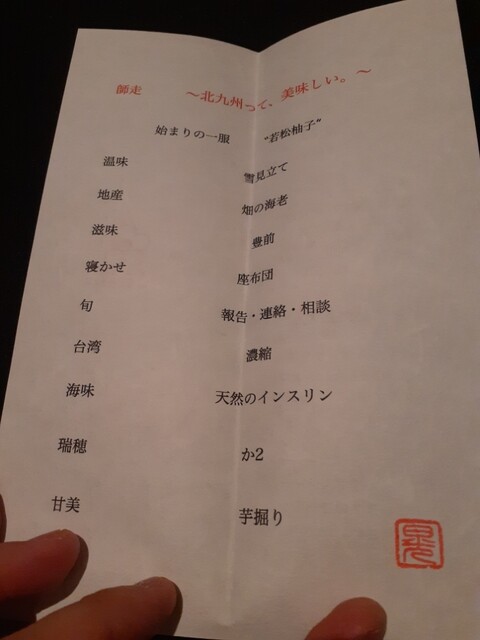 師走 ～北九州って、美味しい。～
始まりの一服 "若松柚子"
温味 雪見立て
地産 畑の海老
滋味 豊前
寝かせ 座布団
旬 報告・連絡・相談
台湾 濃縮
海味 天然のインスリン
瑞穂 か2
甘美 芋掘り